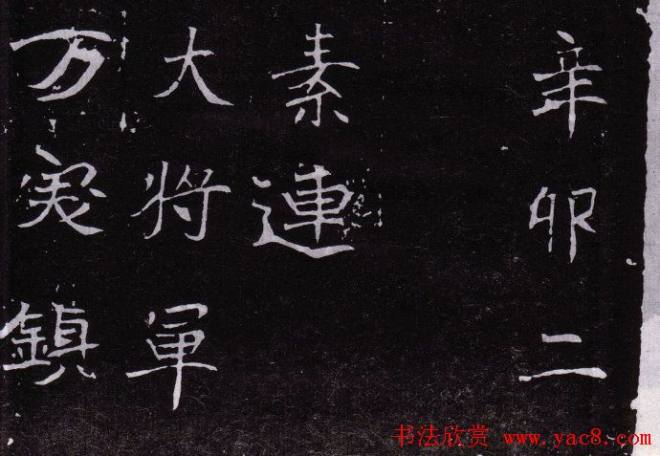 辛卯二
素連
大将軍
万突鎮
书法欣赏 www.yac8.com